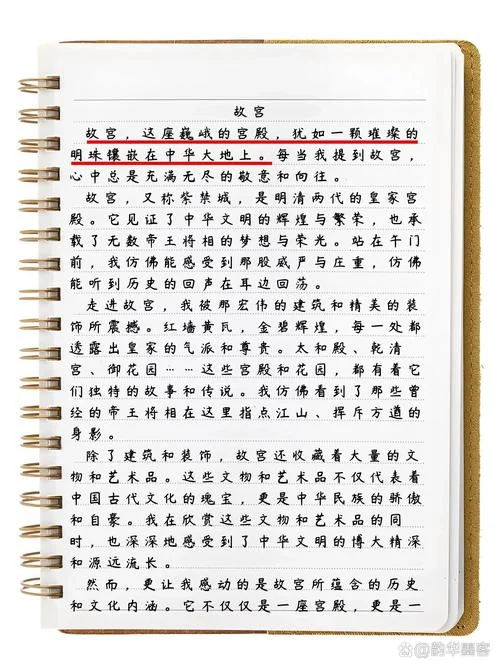 故宫
故宫，这座巍峨的宫殿，犹如一颗璀璨的
明珠镶嵌在中华大地上。每当我提到故宫，
心中总是充满无尽的敬意和向往。
故宫，又称紫禁城，是明清两代的皇家宫
殿。它见证了中华文明的辉煌与繁荣，也承
载了无数帝王将相的梦想与荣光。站在午门
前，我仿佛能感受到那股威严与庄重，仿佛
能听到历史的回声在耳边回荡。
走进故宫，我被那宏伟的建筑和精美的装
饰所震撼。红墙黄瓦，金碧辉煌，每一处都
透露出皇家的气派和尊贵。太和殿、乾清
宫、御花园……这些宫殿和花园，都有着它
们独特的故事和传说。我仿佛看到了那些曾
经的帝王将相在这里指点江山、挥斥方遒的
身影。
除了建筑和装饰，故宫还收藏着大量的文
物和艺术品。这些文物和艺术品不仅代表着
中国古代文化的瑰宝，更是中华民族的骄傲
和自豪。我在欣赏这些文物和艺术品的同
时，也深深地感受到了中华文明的博大精深
和源远流长。
然而，更让我感动的是故宫所蕴含的历史
和文化内涵。它不仅仅是一座宫殿，更是一